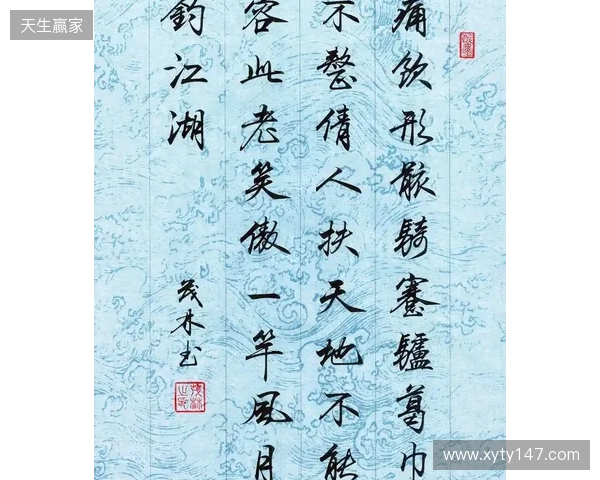 天生赢家
痛饮形骸騎蹇驢葛巾
不整倩人扶天地不能
容此老笑傲一竿風月
钓江湖
茂林书
www.xyty147.com